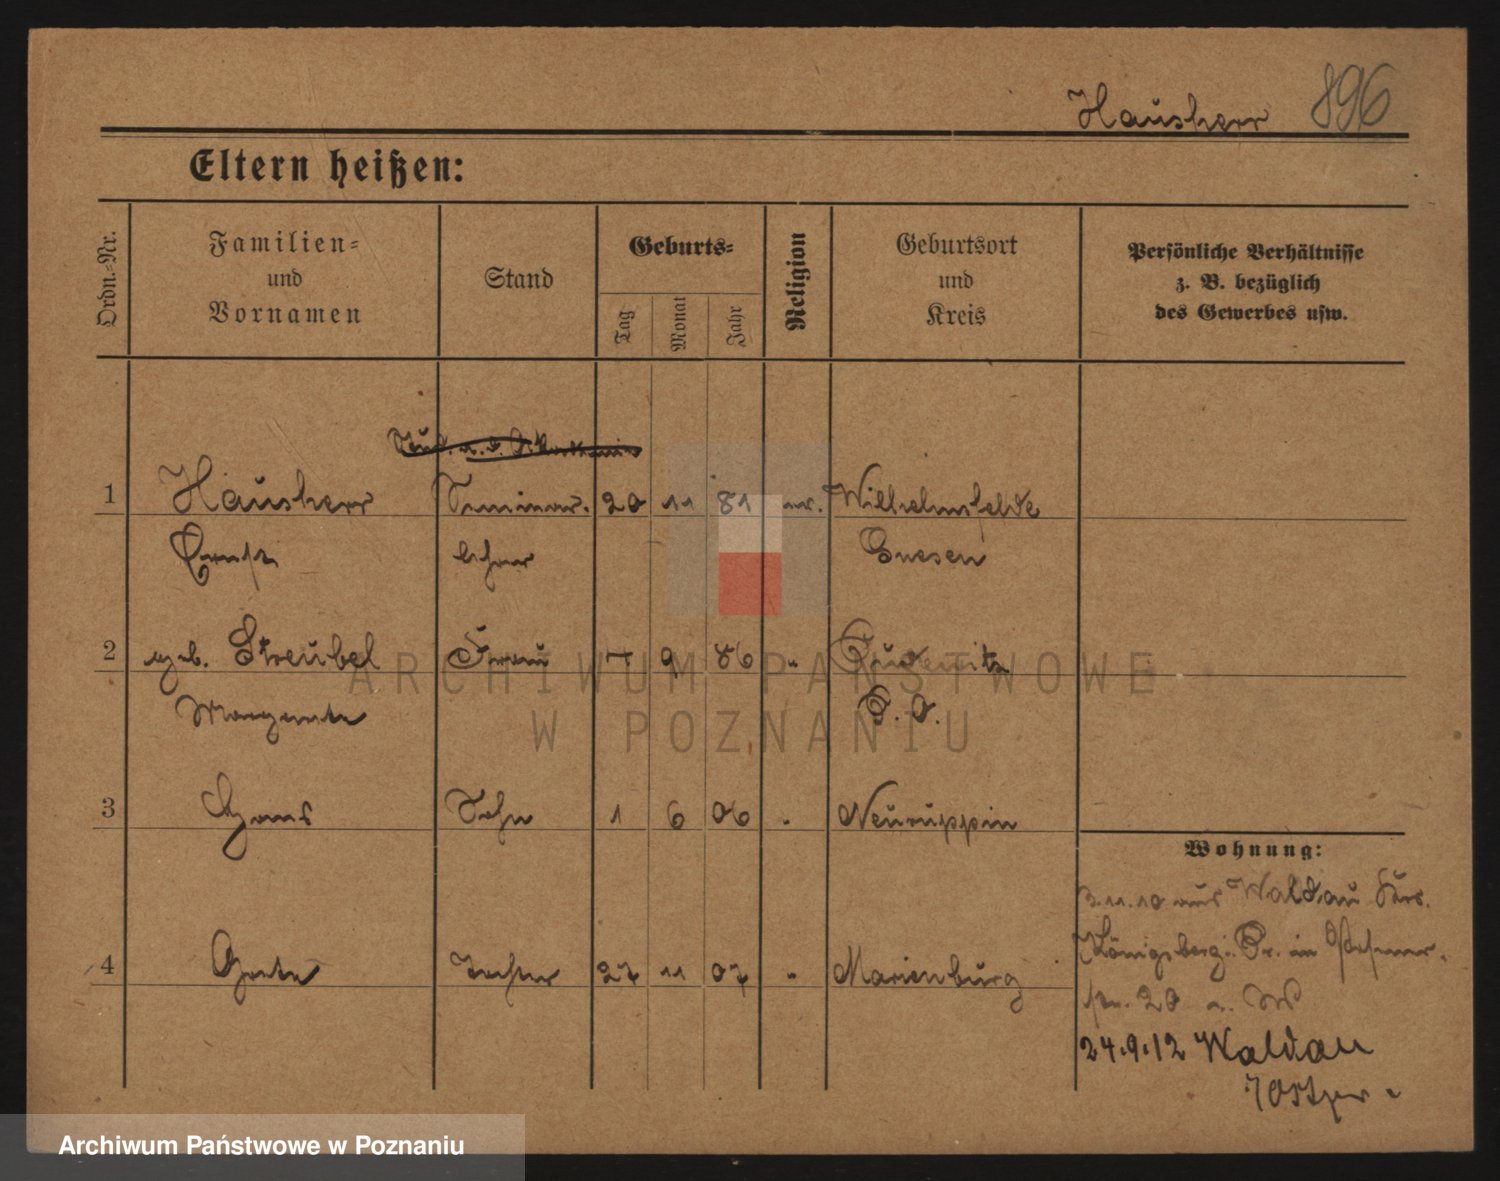 Hausherr 896
Eltern heißen:
Ordn.-Nr.
Familien-
und
Vornamen
Stand
Geburts-
Tag
Monat
Jahr
Religion
Geburtsort
und
Kreis
Persönliche Verhältnisse
z. B. bezüglich
des Gewerbes usw.
1 Hausherr Seminar- 20 11 81 ev. Wilhelmsfelde
Ernst lehrer Gnesen
2 geb. Streubel Frau 7 9 86 " Pudewitz
Margarete P. O.
3 Hans Sohn 1 6 06 " Neuruppin
Wohnung:
3.11.10 aus Waldau Krs.
4 Grete Tochter 27 11 07 " Marienburg
Königsberg i. Pr. in
20
24.9.12 Waldau
/Ostpr.
ARCHIWUM PAŃSTWOWE
W POZNANIU
Archiwum Państwowe w Poznaniu